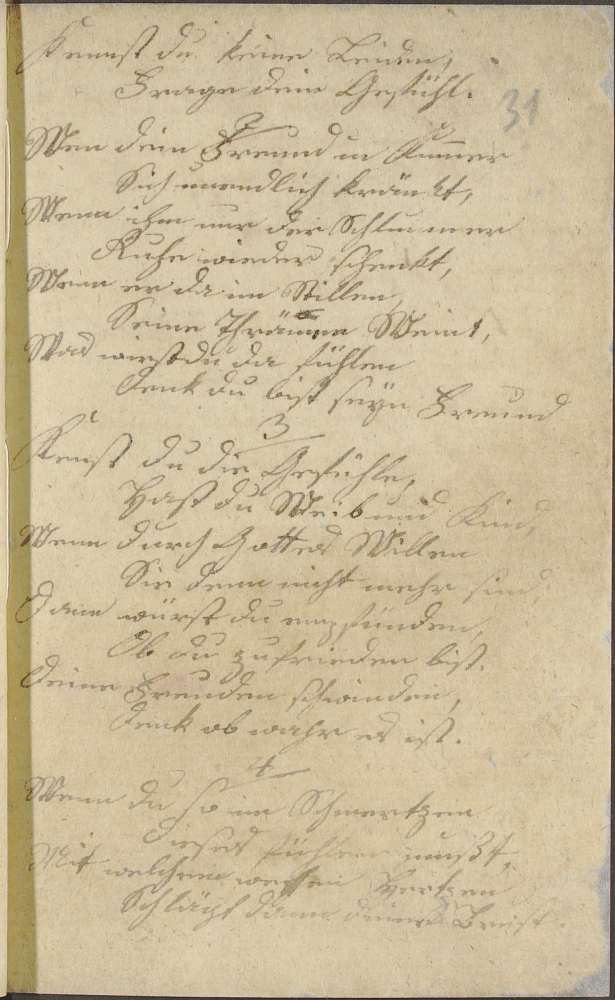 Kennst du keine Leiden,
Frage dein Gefühl.
31
2
Wen dein Freund in Kumer
Sich unendlich kränkt,
Wenn ihm nur der Schlummer
Ruhe wieder schenkt,
Wenn er da im Stillen,
Seine Thränen Weint,
Was wirst du da fühlen
Denk du bist seyn Freund
3
Kenst du die Gefühle,
Hast du Weib und Kind,
Wenn durch Gottes Willen
Sie denn nicht mehr sind,
Dann würst du empfünden,
Ob du zufrieden bist.
Deine Freuden schwinden,
Denk ob wahr es ist.
4
Wenn du so im Schmertzen
dieses fühlen mußt,
Mit welchem Hertzen
Schlägt dann deine Brust.